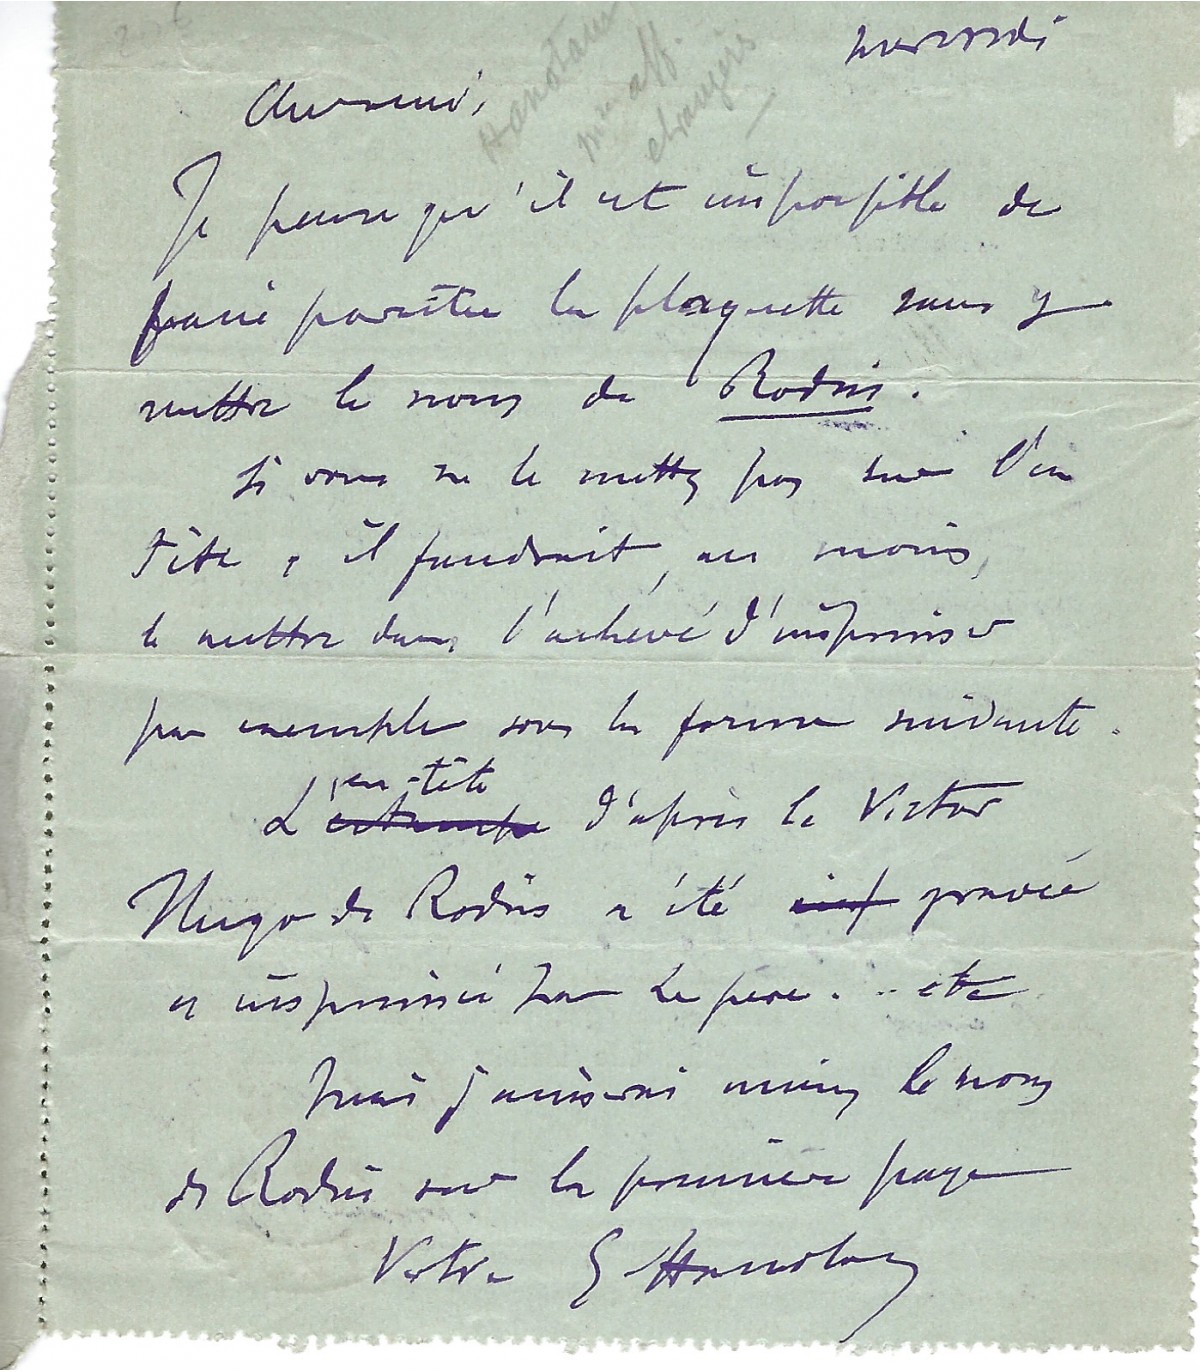 mercredi
Hanotaux
min aff.
etrangères
Cher ami,
Je pense qu'il est impossible de
faire paraître la plaquette sans y
mettre le nom de Rodin.
Si vous ne le mettez pas sur l'en
tête, il faudrait, au moins,
le mettre dans l'achevé d'imprimer
par exemple sous la forme suivante.
en-tête
L'estampe d'après le Victor
Hugo de Rodin a été imp gravée
et imprimée par Lepère... etc
Mais j'aimerais mieux le nom
de Rodin sur la première page
Votre G Hanotaux